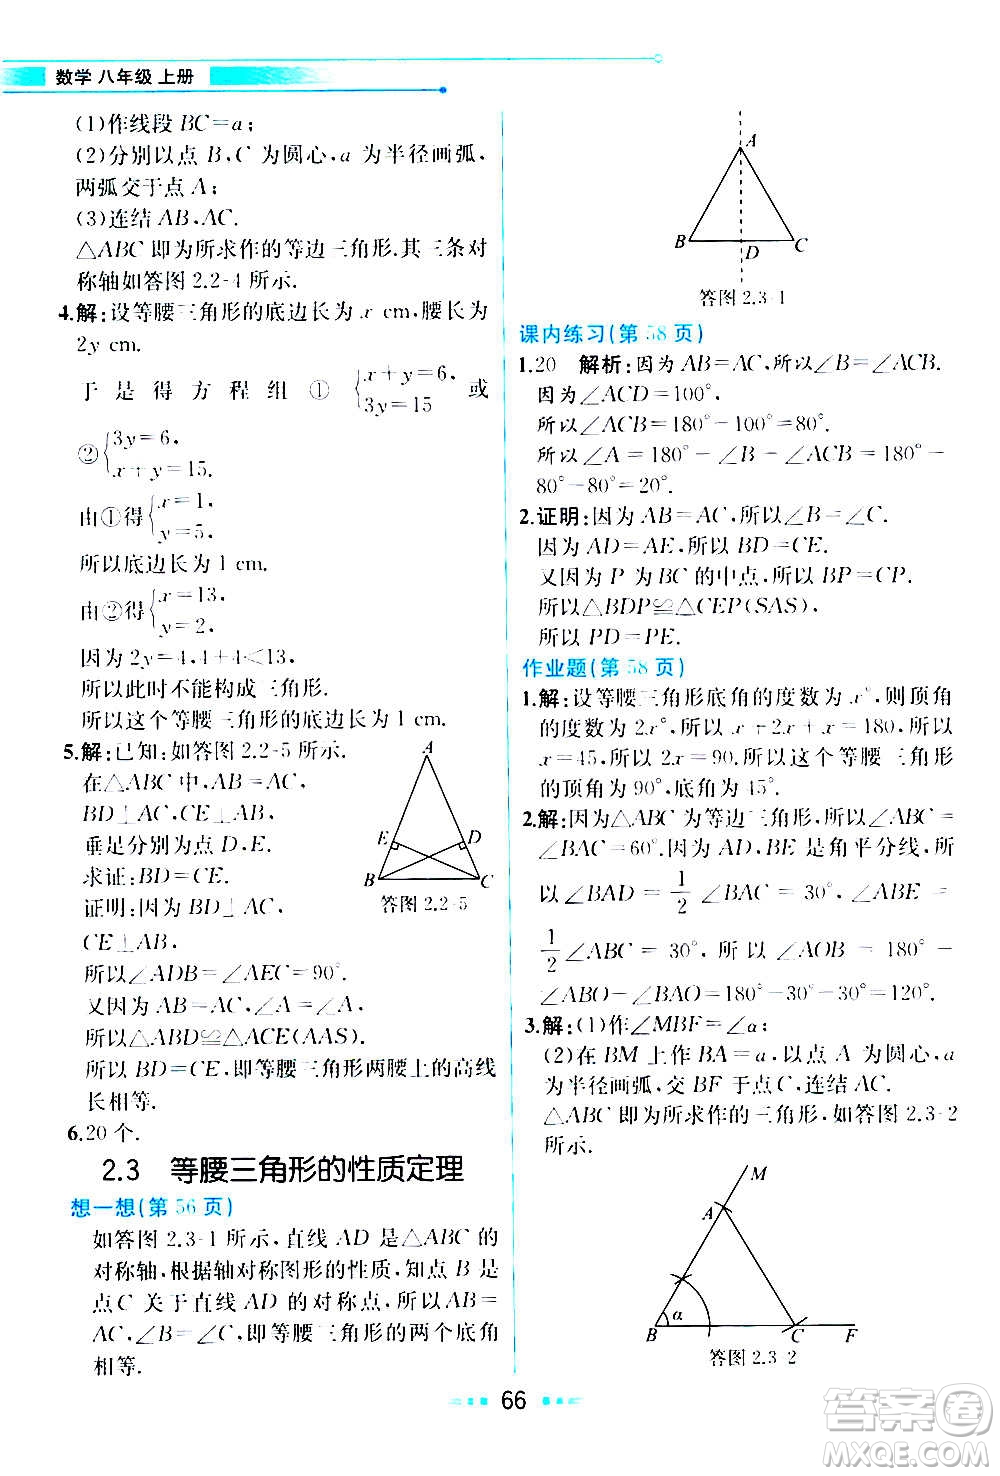 数学 八年级 上册
(1)作线段 BC=a;
(2)分别以点 B,C 为圆心,a 为半径画弧,
两弧交于点 A;
(3)连结 AB,AC.
△ABC 即为所求作的等边三角形,其三条对
称轴如答图 2.2-4 所示.
4.解:设等腰三角形的底边长为 x cm,腰长为
2y cm.
于是得方程组①{x+y=6, 3y=15 或
②{3y=6, x+y=15.
由①得{x=1, y=5,
所以底边长为 1 cm.
由②得{x=13, y=2,
因为 2y=4,4+4<13,
所以此时不能构成三角形.
所以这个等腰三角形的底边长为 1 cm.
5.解:已知:如答图 2.2-5 所示.
在△ABC 中,AB=AC,
BD⊥AC,CE⊥AB,
垂足分别为点 D,E.
求证:BD=CE.
证明:因为 BD⊥AC,
CE⊥AB,
所以∠ADB=∠AEC=90°.
又因为 AB=AC,∠A=∠A,
所以△ABD≌△ACE(AAS).
所以 BD=CE,即等腰三角形两腰上的高线
长相等.
A
E
D
B
C
答图 2.2-5
6.20 个.
2.3 等腰三角形的性质定理
想一想(第 56 页)
如答图 2.3-1 所示,直线 AD 是△ABC 的
对称轴,根据轴对称图形的性质,知点 B 是
点 C 关于直线 AD 的对称点,所以 AB=
AC,∠B=∠C,即等腰三角形的两个底角
相等.
A
B
D
C
答图 2.3-1
课内练习(第 58 页)
1.20 解析:因为 AB=AC,所以∠B=∠ACB.
因为∠ACD=100°,
所以∠ACB=180°-100°=80°.
所以∠A=180°-∠B-∠ACB=180°-
80°-80°=20°.
2.证明:因为 AB=AC,所以∠B=∠C.
因为 AD=AE,所以 BD=CE.
又因为 P 为 BC 的中点,所以 BP=CP.
所以△BDP≌△CEP(SAS).
所以 PD=PE.
作业题(第 58 页)
1.解:设等腰三角形底角的度数为 x°,则顶角
的度数为 2x°,所以 x+2x+x=180,所以
x=45,所以 2x=90.所以这个等腰三角形
的顶角为 90°,底角为 45°.
2.解:因为△ABC 为等边三角形,所以∠ABC=
∠BAC=60°.因为 AD,BE 是角平分线,所
以∠BAD=1/2∠BAC=30°,∠ABE=
1/2∠ABC=30°,所以∠AOB=180°-
∠ABO-∠BAO=180°-30°-30°=120°.
3.解:(1)作∠MBF=∠α;
(2)在 BM 上作 BA=a,以点 A 为圆心,a
为半径画弧,交 BF 于点 C,连结 AC.
△ABC 即为所求作的三角形,如答图 2.3-2
所示.
M
A
α
B
C
F
答图 2.3-2
66
答案圈
MXQE.COM